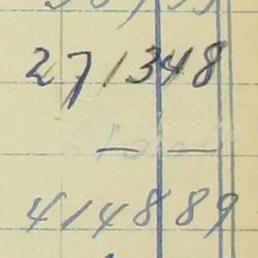 271348
— —
414889